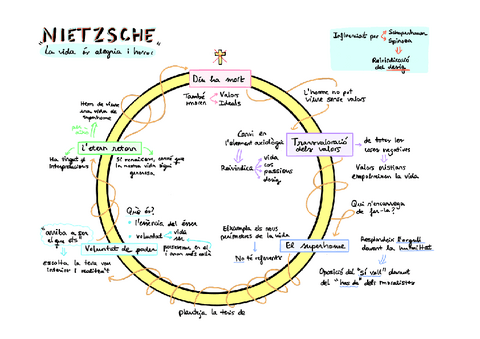 "NIETZSCHE"
La vida és alegria i horror
Influenciat per
Schopenhauer
Spinoza
Reivindicació
del desig
Déu ha mort
També
moren
Valors
Ideals
L'home no pot
viure sense valors
Transvaloració
dels valors
de totes les
coses negatives
Valors cristians
empobreixen la vida
Canvi en
l'element axiològic
Reivindica
vida
cos
passions
desig
Qui s'encarrega
de fer-la?
El superhome
Respondrà
davant la humilitat
Oposició del "sí vull" davant
del "has de" dels moralistes
Exemple els seus
de la vida
No té referents
planteja la tesis de
Voluntat de poder
Què és?
l'essència del ésser
voluntat
vida
ser
perseverar en el
i anar més enllà
"arriba a ser
el que ets"
escolta la teva veu
interior i realitza't
l'etern retorn
Hem de viure
una vida de
superhome
Ha tingut
interpretacions
Si renaixem, caldrà que
la nostra vida sigui